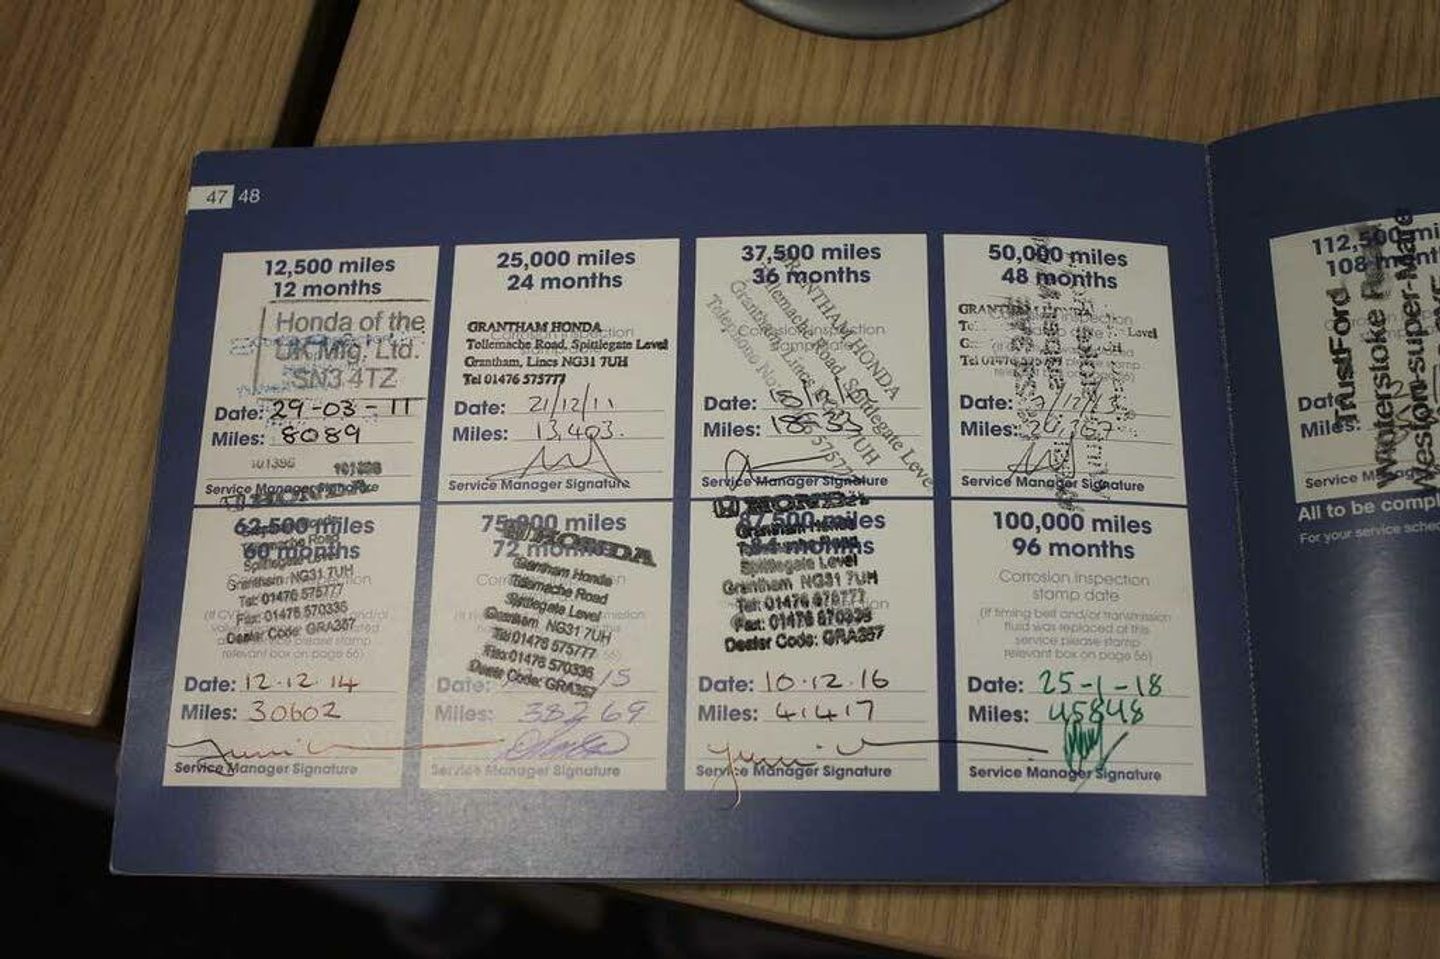 47 48
12,500 miles
12 months
Honda of the
UK Mfg. Ltd.
SN3 4TZ
Date: 29-03-11
Miles: 8089
101396 101396
Service Manager Signature
25,000 miles
24 months
GRANTHAM HONDA
Tollemache Road, Spittlegate Level
Grantham, Lincs NG31 7UH
Tel 01476 575777
Date: 21/12/11
Miles: 13,403.
Service Manager Signature
37,500 miles
36 months
Corrosion inspection
GRANTHAM HONDA
Tollemache Road, Spittlegate Level
Grantham, Lincs 7UH
Telephone No:
Date:
Miles:
Service Manager Signature
50,000 miles
48 months
GRANTHAM
Level
Tel 01476
Date:
Miles: 24,367
Service Manager Signature
62,500 miles
60 months
HONDA
Spittlegate Level
Grantham NG31 7UH
Tel: 01476 575777
Fax: 01476 570336
Dealer Code: GRA357
relevant box on page 56)
Date: 12.12.14
Miles: 30602
Service Manager Signature
75,000 miles
72 months
HONDA
Grantham Honda
Tollemache Road
Spittlegate Level
Grantham NG31 7UH
Tel: 01476 575777
Fax: 01476 570336
Dealer Code: GRA357
Date: 15
Miles: 38269
Service Manager Signature
87,500 miles
84 months
HONDA
Grantham Honda
Tollemache Road
Spittlegate Level
Grantham NG31 7UH
Tel: 01476 575777
Fax: 01476 570336
Dealer Code: GRA357
Date: 10.12.16
Miles: 41417
Service Manager Signature
100,000 miles
96 months
Corrosion inspection
stamp date
(If timing belt and/or transmission
fluid was replaced at this
service please stamp
relevant box on page 56)
Date: 25-1-18
Miles: 45848
Service Manager Signature
112,500 mi
108
TrustFord
Winterstoke
Weston-super-Mare
Date
Miles:
Service Manag
All to be compl
For your service sched